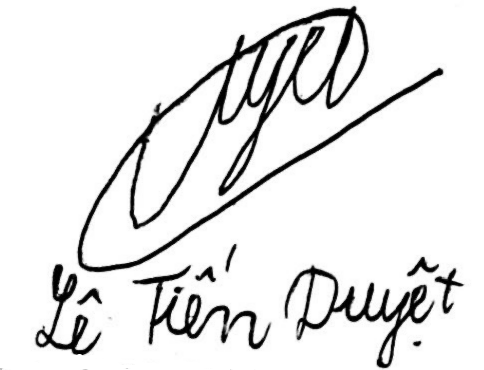 Lê Tiến Duyệt